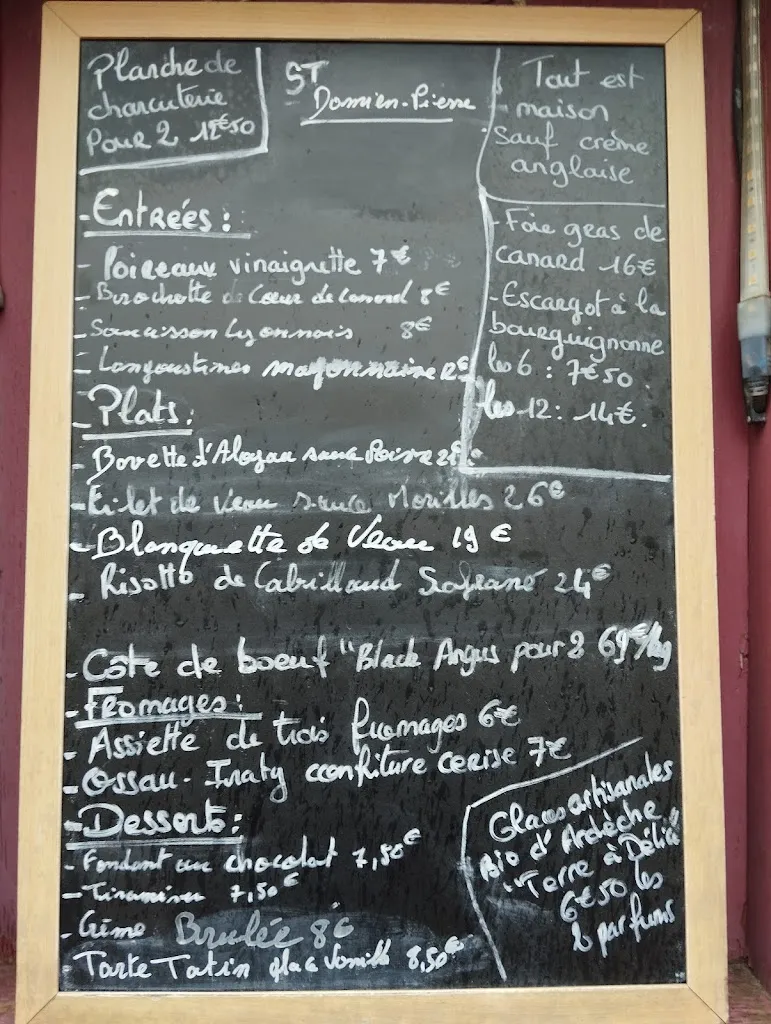 Planche de
charcuterie
Pour 2 12€50
ST
Damien-Pierre
Tout est
maison
Sauf crème
anglaise
- Entrées :
- Poireaux vinaigrette 7€
- Brochette de Coeur de Canard 8€
- Saucisson Lyonnais 8€
- Langoustines mayonnaise 12€
- Foie gras de
canard 16€
- Escargot à la
bourguignonne
les 6 : 7€50
les 12 : 14€.
- Plats :
- Bavette d'Aloyau sauce Poivre
- Filet de Veau sauce Morilles 26€
- Blanquette de Veau 19€
- Risotto de Cabillaud Safrané 24€
- Côte de boeuf "Black Angus pour 2 69€/kg
- Fromages :
- Assiette de trois fromages 6€
- Ossau-Iraty confiture cerise 7€
- Desserts :
- Fondant au chocolat 7,50€
- Tiramisu 7,50€
- Crème Brulée 8€
Tarte Tatin glace Vanille 8,50€
Glaces artisanales
Bio d'Ardèche
"Terre à Délice"
6€50 les
2 parfums